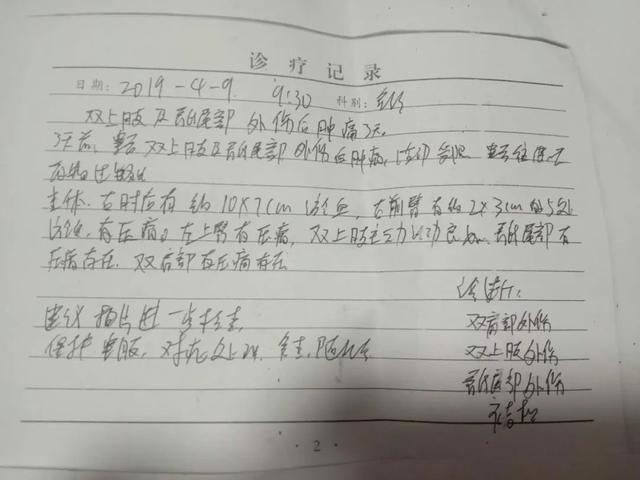 诊疗记录
日期: 2019-4-9. 9:30 科别:
双上肢及骶尾部外伤后肿痛3天.
3天前, 患者双上肢及骶尾部外伤后肿痛, 活动
查体. 右肘后有约10×7cm淤血, 右前臂有约2×3cm的5处
淤血, 有压痛。左上臂有压痛, 双上肢主动活动良好. 骶尾部有
压痛存在. 双肩部有压痛存在
建议拍片进一步检查.
保护患肢, 对症处理, 复查, 随诊
诊断:
双肩部外伤
双上肢外伤
骶尾部外伤
·2·